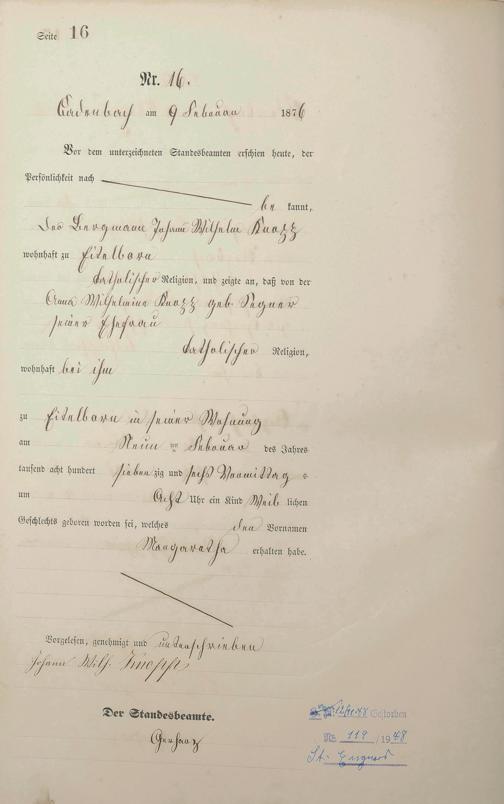 Seite 16
Nr. 16.
Cadenbach am 9 Februar 1876
Vor dem unterzeichneten Standesbeamten erschien heute, der
Persönlichkeit nach
be kannt,
der Bergmann Johann Wilhelm
wohnhaft zu Eitelborn
katholischer Religion, und zeigte an, daß von der
Anna Wilhelmine geb.
seiner Ehefrau
katholischer Religion,
wohnhaft bei ihm
zu Eitelborn in seiner Wohnung
am Neun ten Februar des Jahres
tausend acht hundert sieben zig und sechs Vormittag s
um Acht Uhr ein Kind Weib lichen
Geschlechts geboren worden sei, welches den Vornamen
Margaretha erhalten habe.
Vorgelesen, genehmigt und unterschrieben
Johann Wilh.
Der Standesbeamte.
Gestorben
Nr. 119 /1948
St.